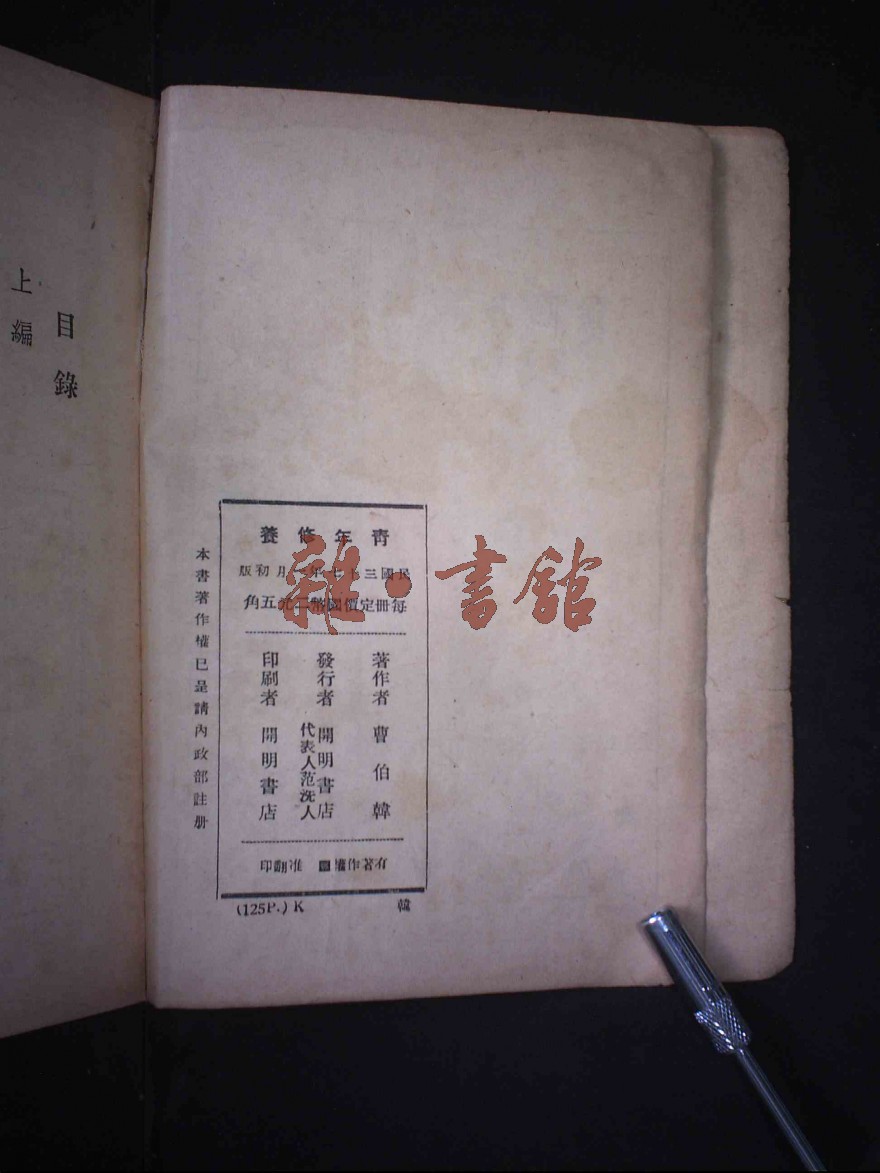 目錄
上編
青年修養
民國三十七年 月初版
每冊定價國幣二元五角
著作者 曹伯韓
發行者 開明書店
代表人范洗人
印刷者 開明書店
有著作權 准翻印
本書著作權已呈請內政部註册
(125P.) K 韓
雜·書館